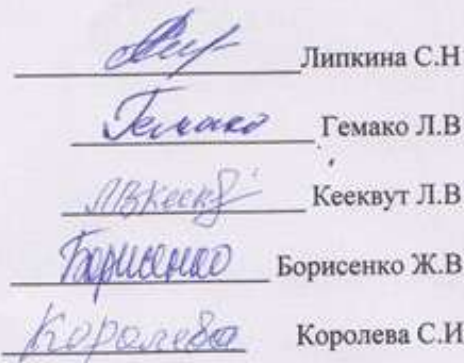 Липкина С.Н
Гемако Гемако Л.В
Кееквут Л.В
Борисенко Борисенко Ж.В
Королева Королева С.И